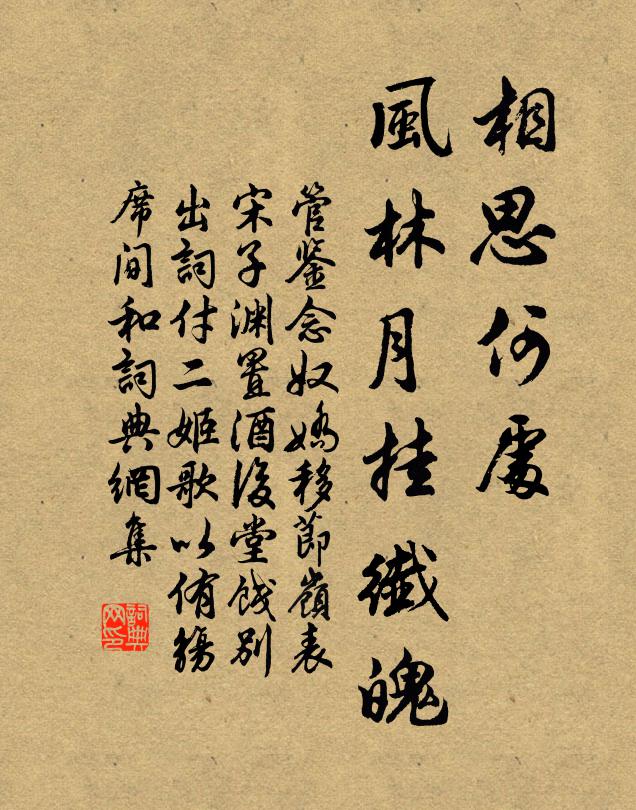 相思何處
風林月挂纖魄
管鉴念奴嬌移節嶺表
宋子淵置酒後堂餞別
出詞付二姬歌以侑觴
席間和詞典網集
詞典网印